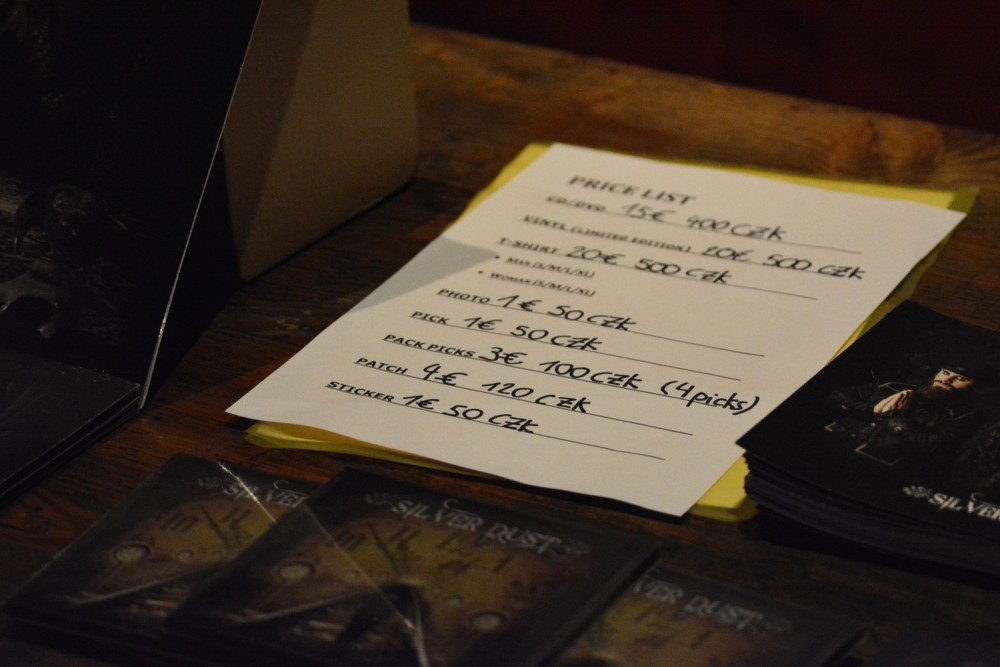 PRICE LIST
CD/DVD 15€ 400 CZK
VINYL (LIMITED EDITION) 20€ 500 CZK
T-SHIRT 20€ 500 CZK
• MAN (S/M/L/XL)
• WOMAN (S/M/L/XL)
PHOTO 1€ 50 CZK
PICK 1€ 50 CZK
PACK PICKS 3€ 100 CZK (4 picks)
PATCH 4€ 120 CZK
STICKER 1€ 50 CZK
SILVER DUST
SILVER DUST